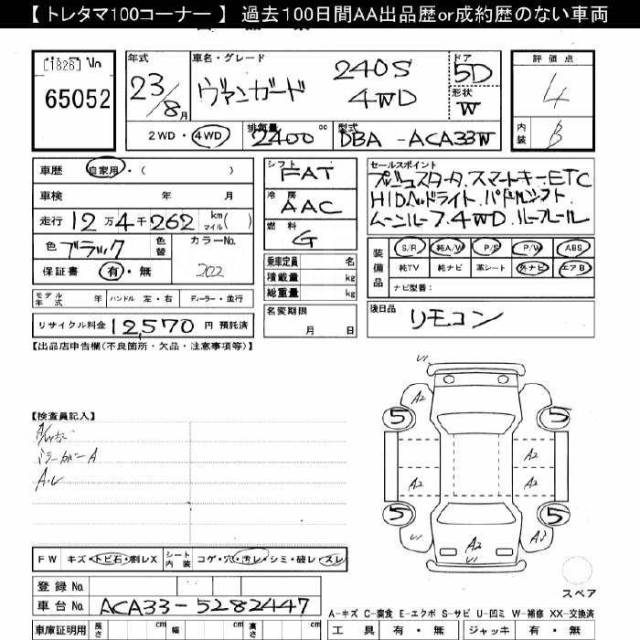 【トレタマ100コーナー】 過去100日間AA出品歴or成約歴のない車両
65052
年式 車名・グレード ドア 評価点
23/8月 ヴァンガード 240S 4WD 5D 4
形状 W
2WD・4WD 排気量 2400 cc 型式 DBA-ACA33W 内装 B
車歴 自家用・( )
シフト FAT
セールスポイント
プッシュスタータ.スマートキー.ETC
HIDヘッドライト.パドルシフト
ムーンルーフ.4WD.ルーフレール
車検 年 月
冷房 AAC
走行 12万4千262 km マイル ( )
燃料 G
色 ブラック 色替 カラーNo. 202
保証書 有・無
乗車定員 名
積載量 kg
総重量 kg
装備品 S/R 純A/W P/S P/W ABS
純TV 純ナビ 革シート 外ナビ エアB
ナビ型番:
モデル年式 年 ハンドル 左・右 ディーラー・並行
名変期限 月 日
後日品 リモコン
リサイクル料金 12,570 円 預託済
【出品店申告欄(不良箇所・欠品・注意事項等)】
【検査員記入】
ミラーカバーA
U1
A2
5 5
A2
A2 A2
5 5
A2
U1 U1
A2
FW キズ・トビ石・刺レX シート内装 コゲ・穴・汚レ・シミ・破レ・スレ
スペア
登録No.
車台No. ACA33-5282447
A-キズ C-腐食 E-エクボ S-サビ U-凹ミ W-補修 XX-交換済
車庫証明用 長さ cm 幅 cm 高さ cm 工具 有・無 ジャッキ 有・無